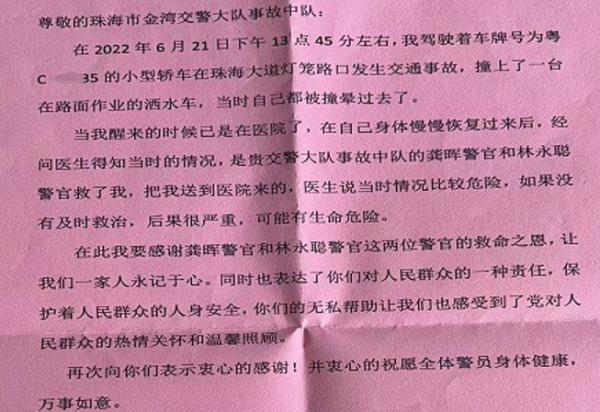 尊敬的珠海市金湾交警大队事故中队：
在 2022 年 6 月 21 日下午 13 点 45 分左右，我驾驶着车牌号为粤
C 35 的小型轿车在珠海大道灯笼路口发生交通事故，撞上了一台
在路面作业的洒水车，当时自己都被撞晕过去了。
当我醒来的时候已是在医院了，在自己身体慢慢恢复过来后，经
问医生得知当时的情况，是贵交警大队事故中队的龚晖警官和林永聪
警官救了我，把我送到医院来的，医生说当时情况比较危险，如果没
有及时救治，后果很严重，可能有生命危险。
在此我要感谢龚晖警官和林永聪警官这两位警官的救命之恩，让
我们一家人永记于心。同时也表达了你们对人民群众的一种责任，保
护着人民群众的人身安全，你们的无私帮助让我们也感受到了党对人
民群众的热情关怀和温馨照顾。
再次向你们表示衷心的感谢！并衷心的祝愿全体警员身体健康，
万事如意。